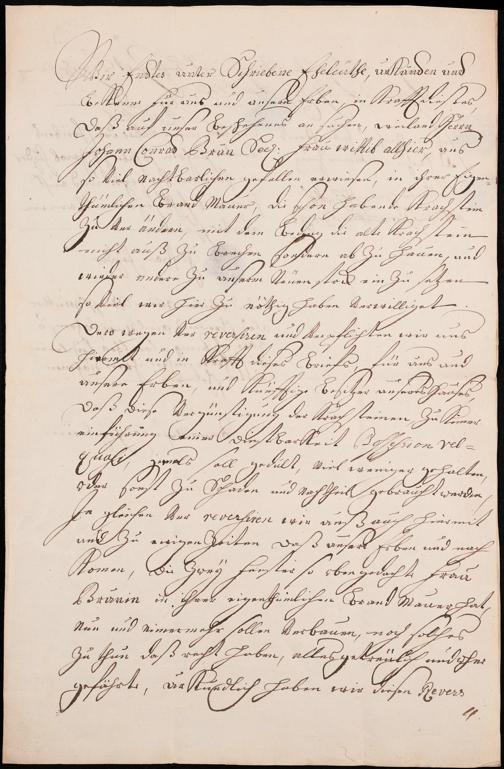 Wir Endes unter Schriebene Eheleuthe, urkunden und
bekennen für uns und unsere Erben, in Krafft dieses
daß auf unser beschehenes an suchen, weiland Herrn
Johann Conrad Braun Seel: Frau wittib allhier, uns
so viel nachbarlichen gefallen erwiesen, in ihrer Eigen-
thümlichen Brand Mauer, die schon habende Krachstein
zu ver ändern, mit dem beding die alte Krachstein
nicht auß zu brechen sondern ab zu hauen, und
wieder andere zu unserm Neuen stock ein zu setzen
so viel wir hier zu nöthig haben verwilliget.
Dero wegen Reversiren und verpflichten wir uns
hiermit und in Krafft dieses Briefs, für uns und
unsere Erben, und künfftige Besitzer unseres Hauses,
daß diese vergünstigung der Krachsteinen zu keiner
einführung einer dienstbarkeit Possession vel
quasi, soll gedult, viel weniger gehalten,
oder sonst zu schaden und nachtheil gebraucht werden,
In gleichen reversiren wir unß auch hiermit
und zu ewigen Zeiten daß unsere Erben und nach
komen, die zwey fenster so obengedachte Frau
Braunin in ihrer eigenthümlichen Brand Mauer hat,
nun und nimermehr sollen verbauen, noch solches
zu thun das recht haben, alles getreulich und ohne
gefährte, urkundlich haben wir diesen Revers